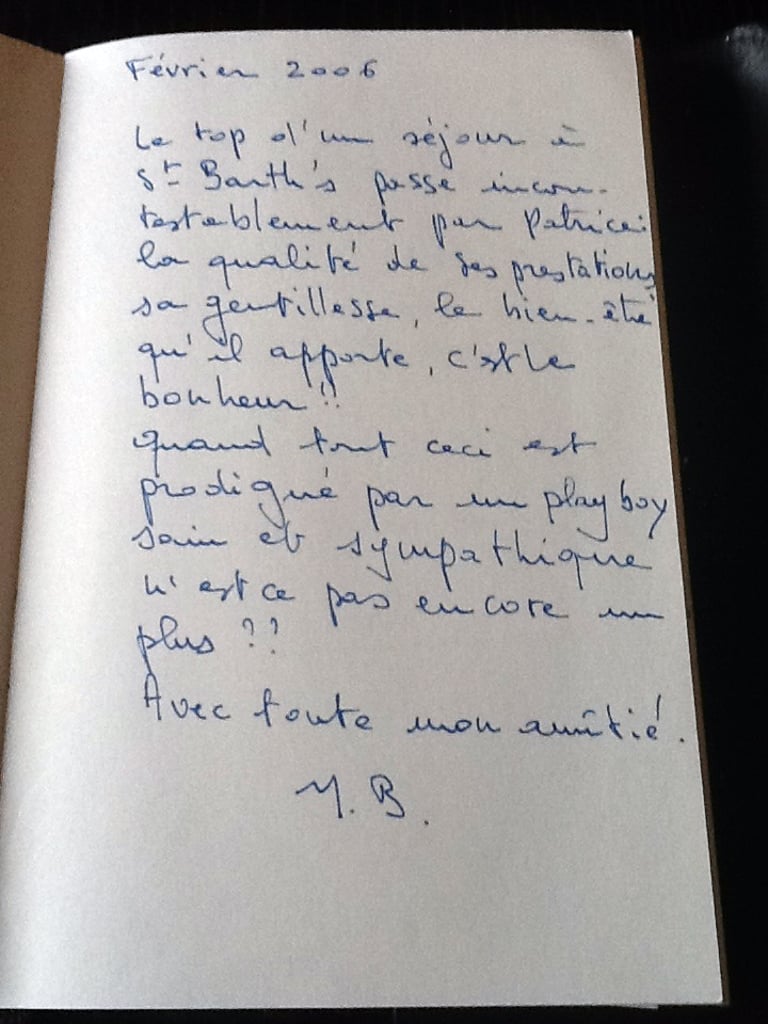 Février 2006
Le top d'un séjour à
St Barth's passe incon-
testablement par Patrice:
la qualité de ses prestations,
sa gentillesse, le bien-être
qu'il apporte, c'est le
bonheur !!
quand tout ceci est
prodigué par un play boy
sain et sympathique
n'est ce pas encore un
plus ??
Avec toute mon amitié.
M. B.